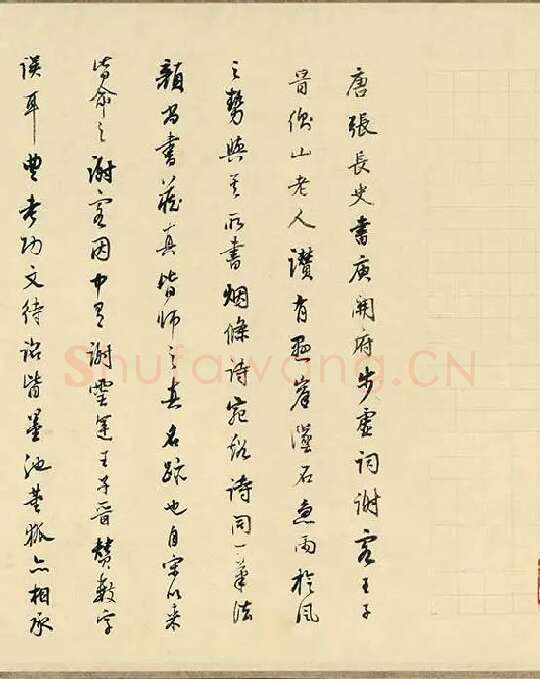 唐張長史書庾開府步虛詞謝客王子
晉衡山老人讚有懸崖墜石急雨旋風
之勢與其所書烟條詩宛谿詩同一筆法
顏尚書藏真皆師之真名跡也自宋以來
皆命之謝客因中有謝靈運王子晉贊數字
誤耳豐考功文待詔皆墨池董狐亦相承
Shufawang.CN